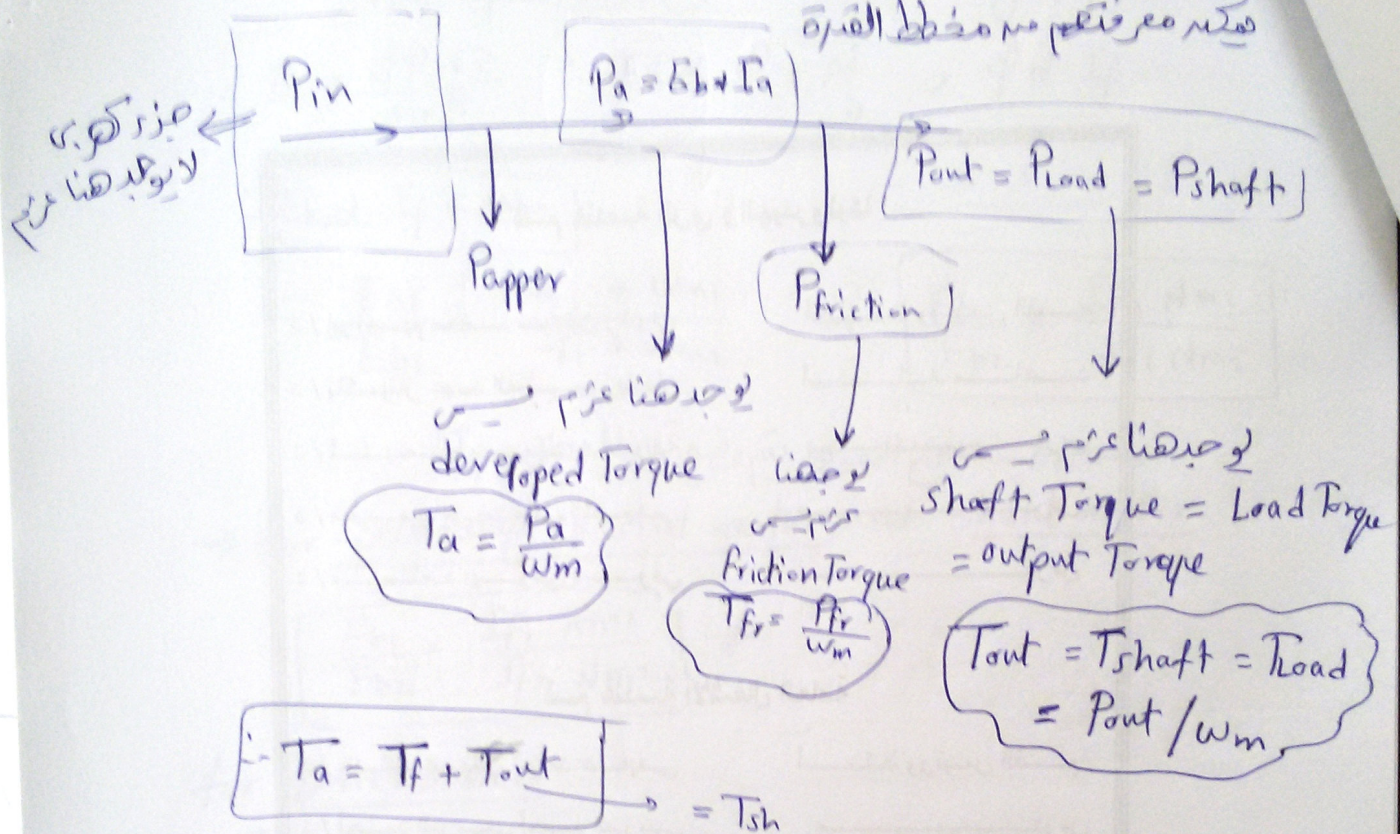 يمكن معرفتهم من مخطط القدرة
Pin
Pa = Eb * Ia
جزء كهربي
لا يوجد هنا عزم
Pout = PLoad = Pshaft
Papper
Pfriction
يوجد هنا عزم يسمى
developed Torque
Ta = Pa / ωm
يوجد هنا
عزم يسمى
friction Torque
Tfr = Pfr / ωm
يوجد هنا عزم يسمى
shaft Torque = Load Torque
= output Torque
Tout = Tshaft = TLoad
= Pout / ωm
∴ Ta = Tf + Tout
= Tsh